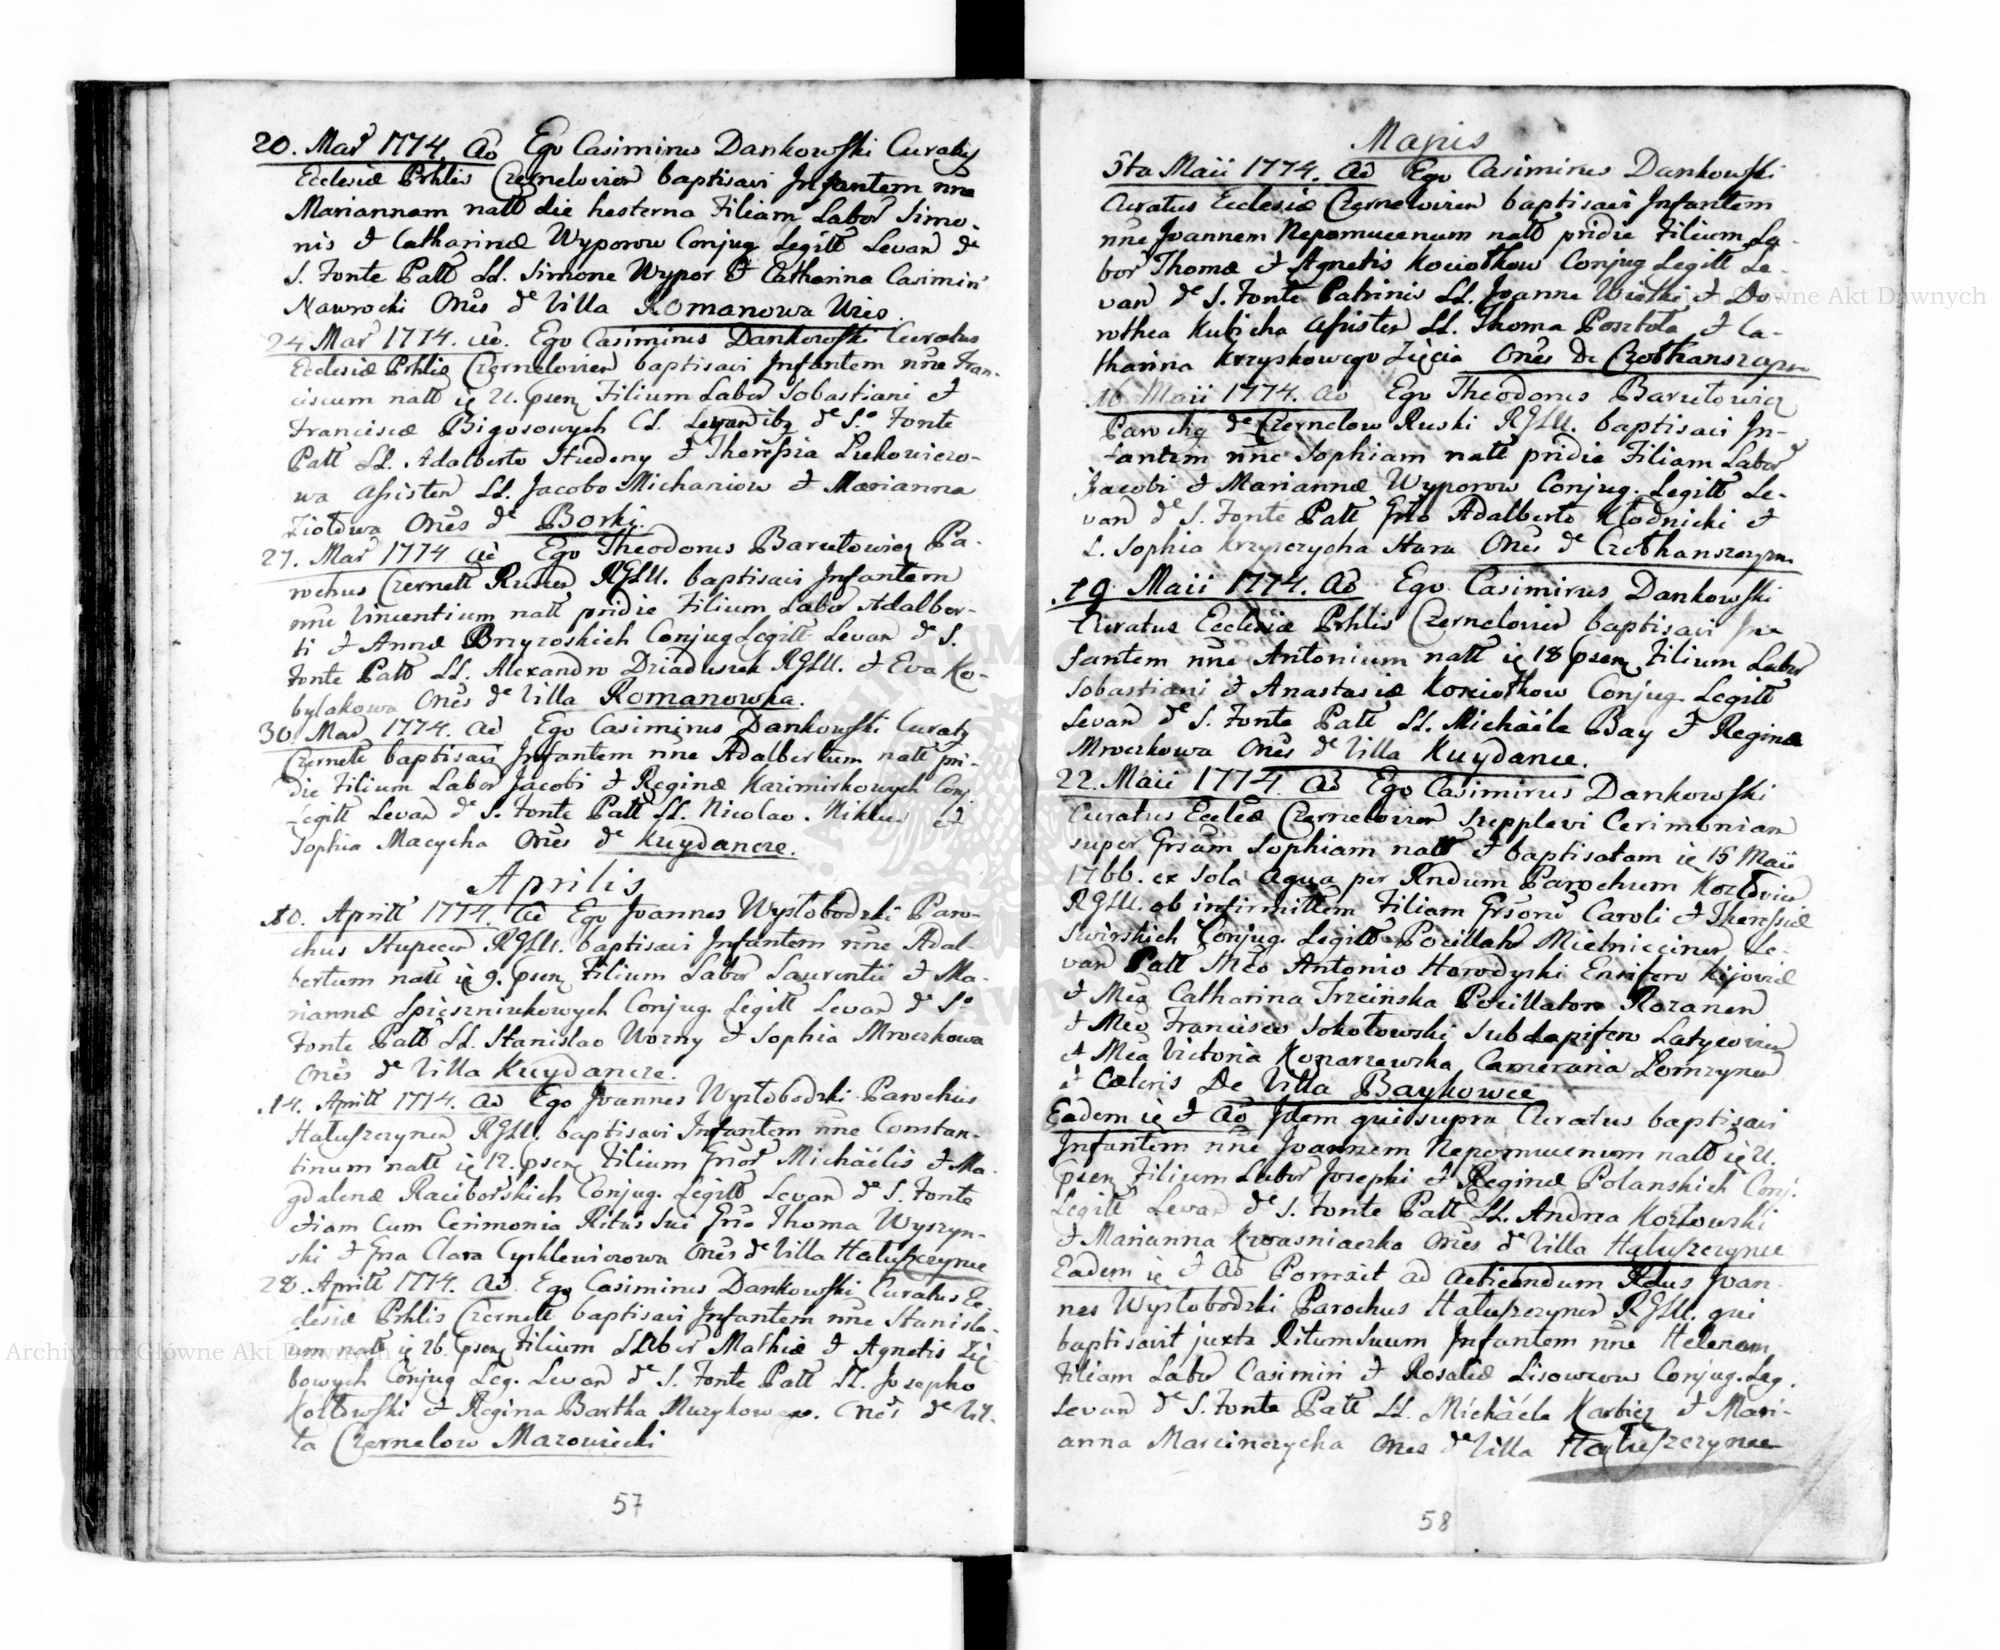 20. Mar 1774. Ao Ego Casimirus Dankowski Curatus
Ecclesiæ Prhlis Czernelovien baptisavi Infantem nne
Mariannam natt die hesterna Filiam Labor Simo-
nis et Catharinæ Wyporow Conjug Legitt Levan de
S. Fonte Patt LL. Simone Wypor et Catharina Casimiri
Nawrocki Ones de Villa Romanowa Wies.
24 Mar 1774. Ao. Ego Casimirus Dankowski Curatus
Ecclesiæ Prhlis Czernelovien baptisavi Infantem nne Fran-
ciscum natt Filium Labor Sobastiani et
Franciscæ Bigosowych CL. de S. Fonte
Patt LL. Adalberto et Theressia
wa Assisten LL. Jacobo Michaniow et Marianna
Ziołowa Ones de Borki.
27. Mar 1774 Ao Ego Theodorus Barutowicz Pa-
rochus Czernell Ruscen RGLU. baptisavi Infantem
nne Vincentium natt pridie Filium Labor Adalber-
ti et Annæ Brzyzoskich Conjug Legitt Levan de S.
Fonte Patt LL. Alexandro Dziaduszek RGLU. et Eva Ko-
bylakowa Ones de Villa Romanowka.
30. Mar 1774. Ao Ego Casimirus Dankowski Curatus
Czernell baptisavi Infantem nne Adalbertum natt pri-
die Filium Labor Jacobi et Reginæ Kazimirkowych Conj.
Legitt Levan de S. Fonte Patt LL. Nicolao. Niklus et
Sophia Macycha Ones de Kuydancze.
Aprilis
10. Aprill 1774. Ao Ego Joannes Wysłobodzki Paro-
chus Stupecen RGLU. baptisavi Infantem nne Adal-
bertum natt 9. psen Filium Labor Laurentii et Ma-
riannæ Spieszniukowych Conjug. Legitt Levan de S.
Fonte Patt LL. Stanislao Wozny et Sophia Mroczkowa
Ones de Villa Kuydancze.
14. Aprill 1774. Ao Ego Joannes Wysłobodzki Parochus
Hałuszczynen RGLU. baptisavi Infantem nne Constan-
tinum natt 12. psen Filium Grsor Michäelis et Ma-
gdalenæ Raciborskich Conjug. Legitt Levan de S. Fonte
etiam Cum Cerimonia Ritus Sui Grso Thoma Wyszyn-
ski et Grsa Clara Cyrklewiczowa Ones de Villa Hałuszczynce
28. Aprill 1774. Ao. Ego Casimirus Dankowski Curatus Ec-
clesiæ Prhlis Czernell baptisavi Infantem nne Stanisla-
um natt 26. psen Filium Labor Mathiæ et Agnetis Zię-
bowych Conjug Leg. Levan de S. Fonte Patt LL. Josepho
Kozłowski et Regina Bartka Muzykowa. Ones de Vil-
la Czernelow Mazowiecki
57
Majus
5ta Maii 1774. Ao Ego Casimirus Dankowski
Curatus Ecclesiæ Czernelovien baptisavi Infantem
nne Joannem Nepomucenum natt pridie Filium La-
bor Thomæ et Agnetis Kociołkow Conjug Legitt Le-
van de S. Fonte Patrinis LL. Joanne Wielki et Do
rothea Kubicha Assisten LL. Thoma Posztoła et Ca-
tharina Krzyskowego Zięcia Ones De Czołhanszczyzn
16 Maii 1774. Ao Ego Theodorus Barutowicz
Parochus de Czernelow Ruski RGLU. baptisavi In-
fantem nne Sophiam natt pridie Filiam Labor
Jacobi et Mariannæ Wyporow Conjug. Legitt Le-
van de S. Fonte Patt Grso Adalberto Kłodnicki et
L. Sophia Krzyszczycha Stara Ones de Czołhanszczyzna
19 Maii 1774. Ao Ego Casimirus Dankowski
Curatus Ecclesiæ Prhlis Czernelovien baptisavi In-
fantem nne Antonium natt 18 psen Filium Labor
Sobastiani et Anastasiæ Kociołkow Conjug Legitt
Levan de S. Fonte Patt LL. Michäele Bay et Regina
Mroczkowa Ones de Villa Kuydance.
22. Maii 1774. Ao Ego Casimirus Dankowski
Curatus Eccleæ Czernelovien Supplevi Cerimoniam
super Grsam Sophiam natt et baptisatam 15 Maii
1766. ex sola aqua per Rndum Parochum Kozłovien
RGLU. ob infirmittem Filiam Grsor Caroli et Theressiæ
Swirskich Conjug. Legitt Pocillat Mielniccinen Le-
van Patt Mco Antonio Horodyski Ensifero Kijoviæ
et Mca Catharina Trzcinska Pocillatore Rozanen
et Mco Francisco Sokołowski Subdapifero Latyczovien
et Mca Victoria Komarzewska Cameraria Lomzynen
et Cæteris De Villa Baykowce
Eadem et Ao Idem qui supra Curatus baptisavi
Infantem nne Joannem Nepomucenum natt
psen Filium Labor Josephi et Reginæ Polanskich Conj.
Legitt Levan de S. Fonte Patt LL. Andrea Kozłowski
et Marianna Kwasniaczka Ones de Villa Hałuszczynce
Eadem et Ao Porrexit ad Rdus Joan-
nes Wysłobodzki Parochus Hałuszczynen RGLU. qui
baptisavit juxta Ritum Suum Infantem nne Helenam
Filiam Labor Casimiri et Rosaliæ Lisowcow Conjug. Leg.
Levan de S. Fonte Patt LL. Michäele Karbicz et Mari-
anna Marcinczycha Ones de Villa Hałuszczynce
58
Archiwum Główne Akt Dawnych